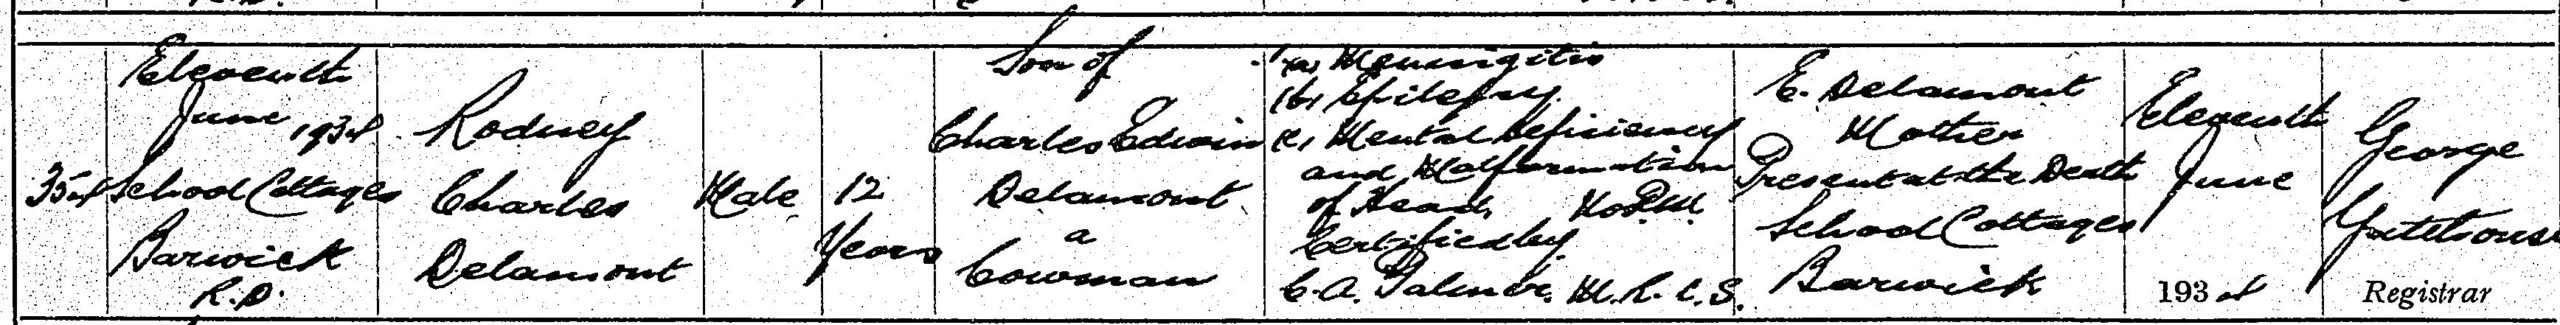 354
Eleventh
June 1934
School Cottages
Barwick
R.D.
Rodney
Charles
Delamont
Male
12
Years
Son of
Charles Edwin
Delamont
a
Cowman
1(a) Meningitis
(b) Epilepsy
(c) Mental Deficiency
and Malformation
of Head. No P.M.
Certified by
C.A. Palmer. M.R.C.S.
E. Delamont
Mother
Present at the Death
School Cottages
Barwick
Eleventh
June
1934
George
Registrar